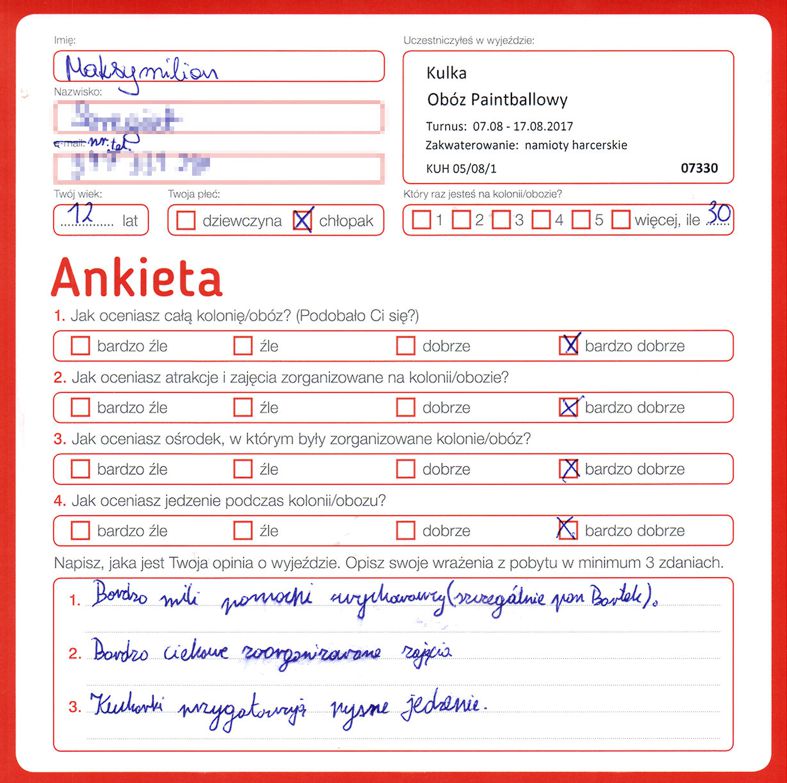 Imię:
Maksymilian
Nazwisko:
e-mail: nr. tel.
Twój wiek:
12 lat
Twoja płeć:
dziewczyna chłopak
Uczestniczyłeś w wyjeździe:
Kulka
Obóz Paintballowy
Turnus: 07.08 - 17.08.2017
Zakwaterowanie: namioty harcerskie
KUH 05/08/1 07330
Który raz jesteś na kolonii/obozie?
1 2 3 4 5 więcej, ile 30
Ankieta
1. Jak oceniasz całą kolonię/obóz? (Podobało Ci się?)
bardzo źle źle dobrze bardzo dobrze
2. Jak oceniasz atrakcje i zajęcia zorganizowane na kolonii/obozie?
bardzo źle źle dobrze bardzo dobrze
3. Jak oceniasz ośrodek, w którym były zorganizowane kolonie/obóz?
bardzo źle źle dobrze bardzo dobrze
4. Jak oceniasz jedzenie podczas kolonii/obozu?
bardzo źle źle dobrze bardzo dobrze
Napisz, jaka jest Twoja opinia o wyjeździe. Opisz swoje wrażenia z pobytu w minimum 3 zdaniach.
1. Bardzo mili pomocni wychowawcy (szczególnie pan Bartek).
2. Bardzo ciekawe zoorganizowane zajęcia
3. Kucharki przygotowują pyszne jedzenie.